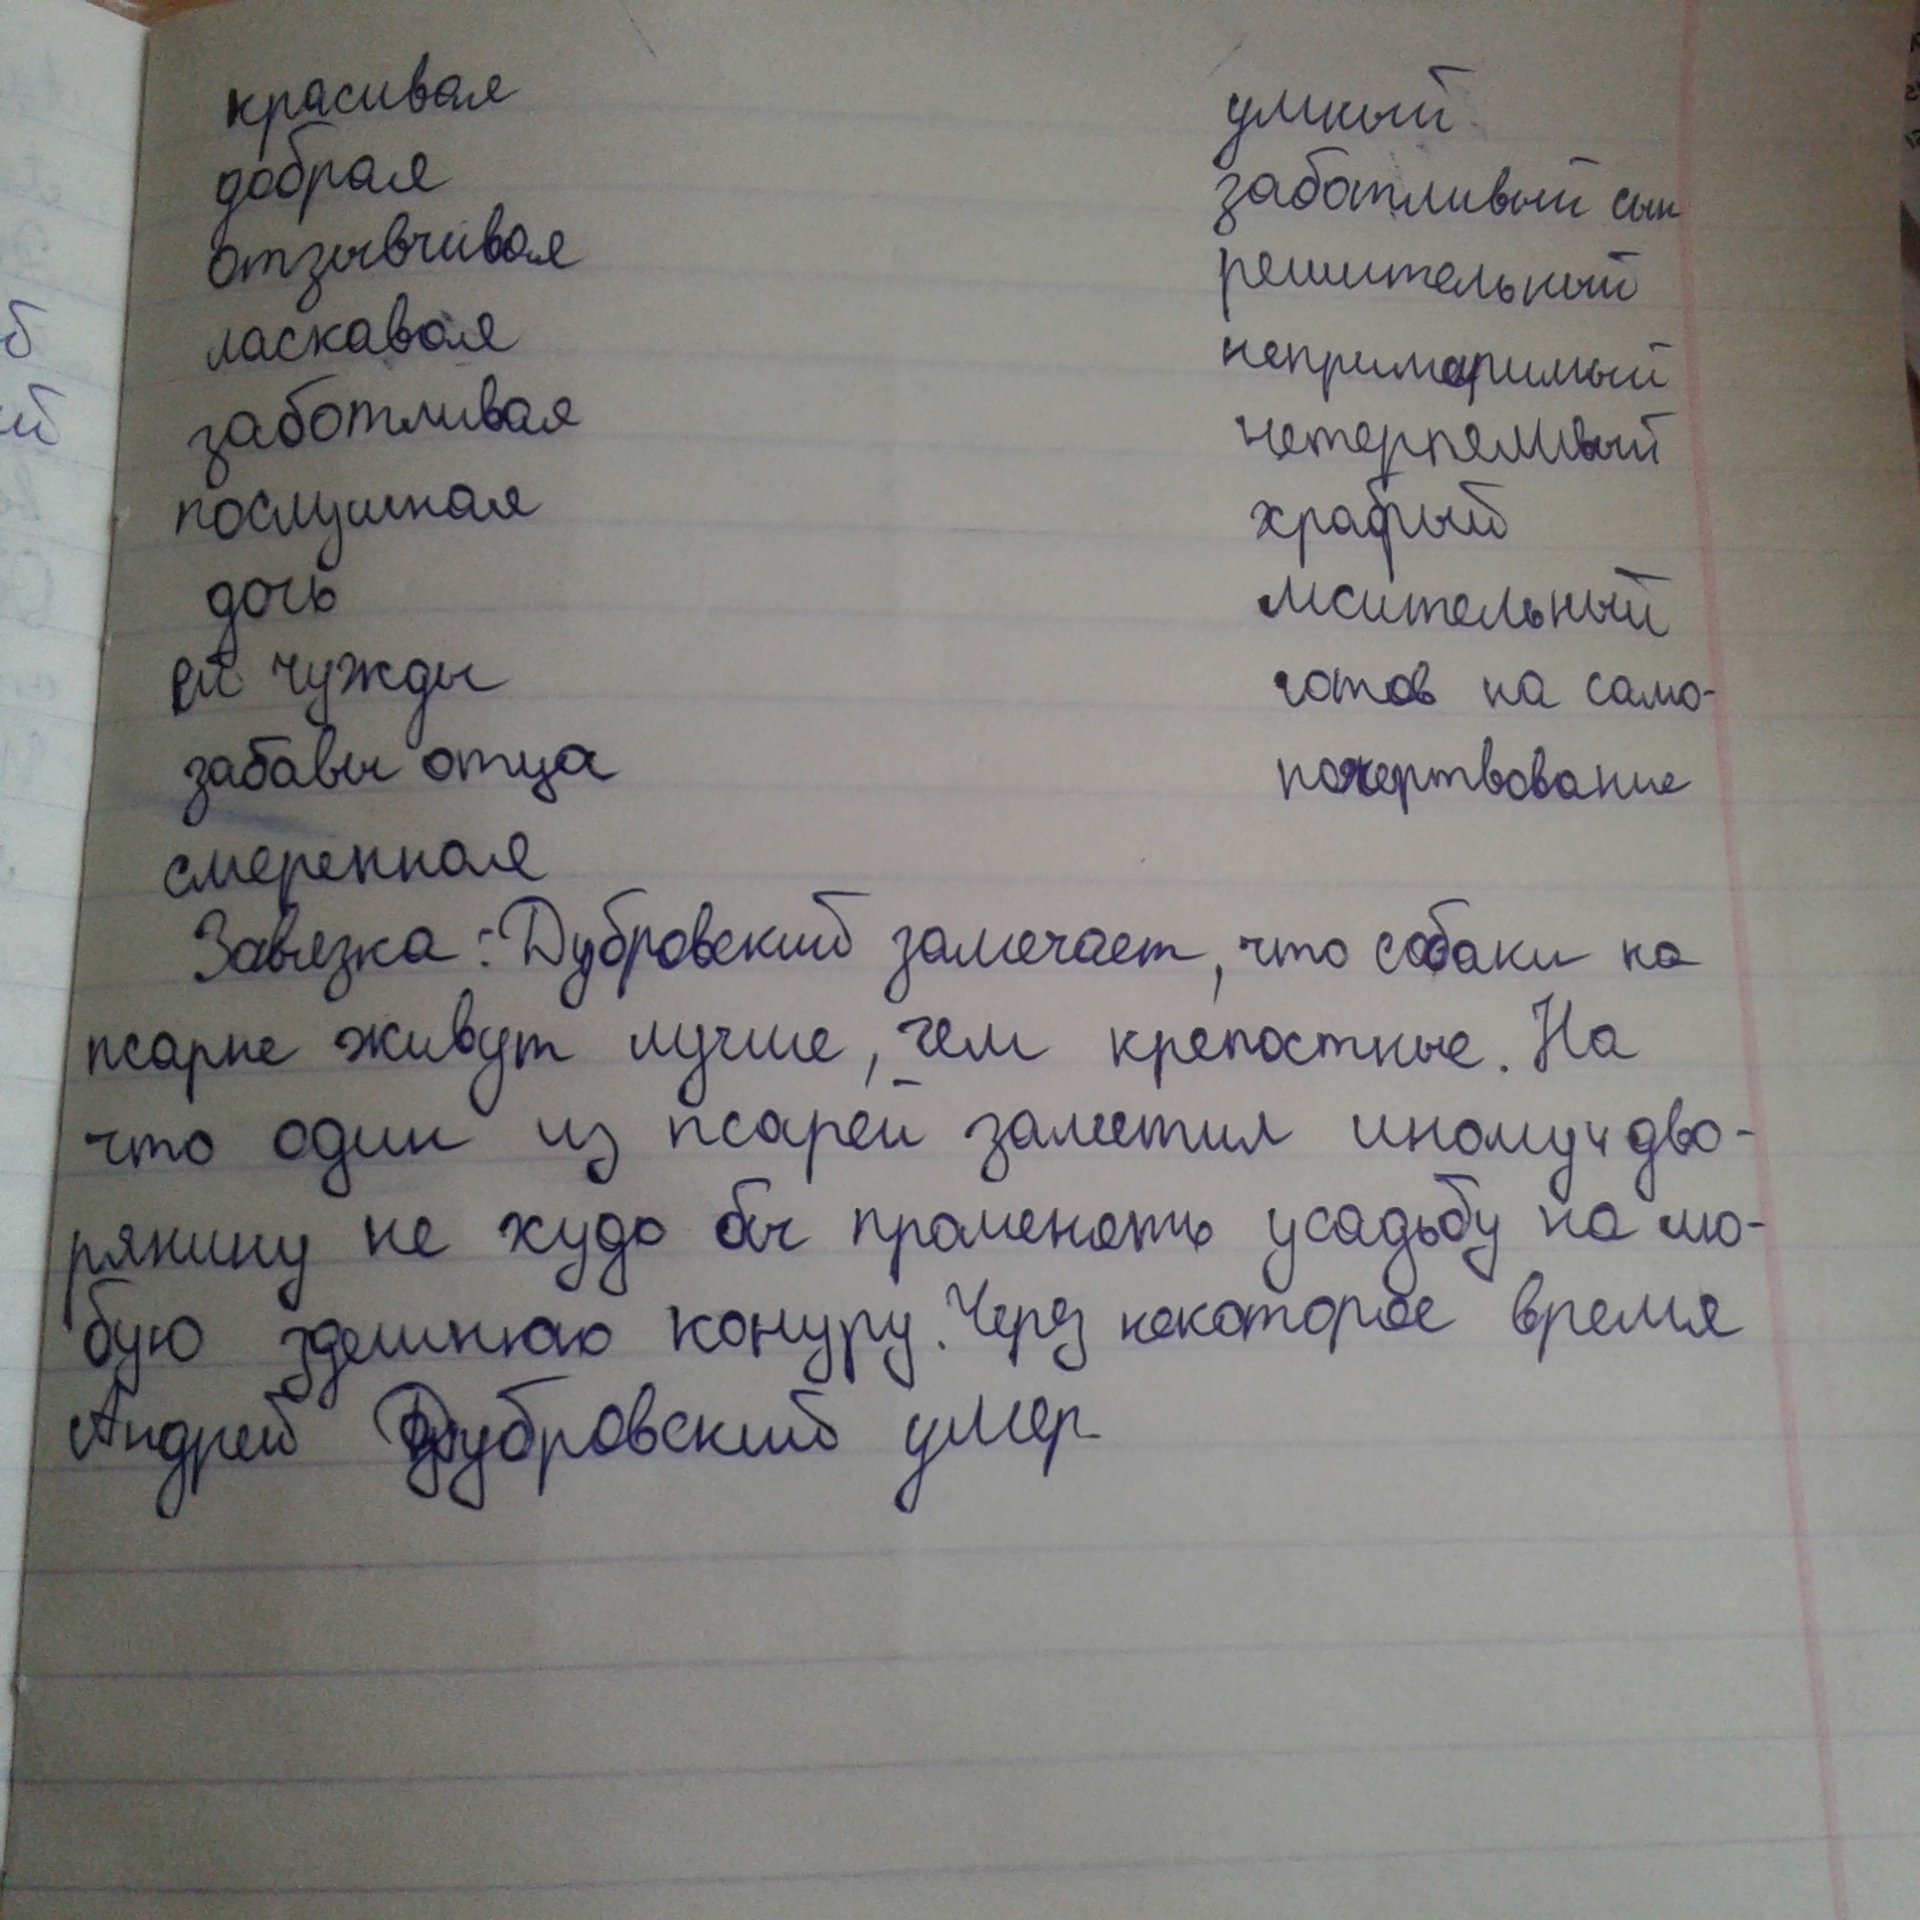 красивая
добрая
отзывчивая
ласкавая
заботливая
послушная
дочь
ей чужды
забавы отца
смеренная
умный
заботливый сын
решительный
непримиримый
нетерпеливый
храбрый
мсительный
готов на само-
пожертвование
Завязка: Дубровский замечает, что собаки на
псарне живут лучше, чем крепостные. На
что один из псарей заметил иному дво-
рянину не худо бы променять усадьбу на лю-
бую здешнюю конуру. Через некоторое время
Андрей Дубровский умер